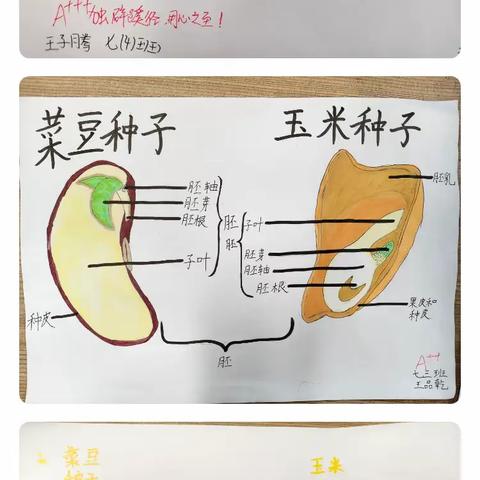 A+++ 独辟蹊径,用心之至!
王子腾 七(4)班
菜豆种子
玉米种子
胚轴
胚芽
胚根
子叶
种皮
胚
胚
胚乳
子叶
胚芽
胚轴
胚根
果皮和
种皮
胚
A++
七三班
王品乾
菜豆
种子
玉米